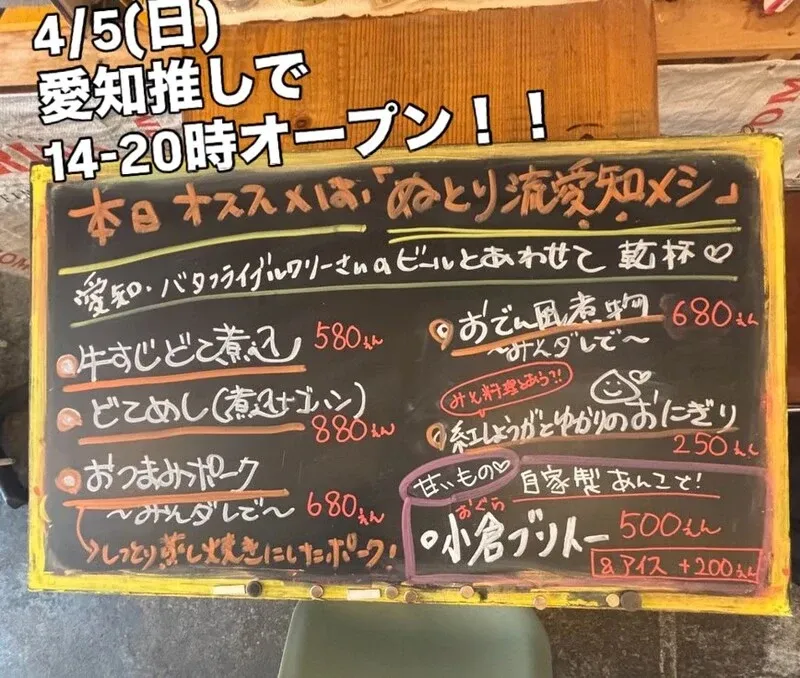 4/5(日)
愛知推しで
14-20時オープン！！
本日オススメは「ぬとり流愛知メシ」
愛知・バタフライブルワリーさんのビールとあわせて 乾杯♡
牛すじどて煮込 580えん
どてめし(煮込+ゴハン)
880えん
おつまみポーク
〜みそダレで〜 680えん
しっとり蒸し焼きにしたポーク!
おでん風煮物 680えん
〜みそダレで〜
みそ料理とあう?!
紅しょうがとゆかりのおにぎり
250えん
甘いもの♡ 自家製あんこと!
おぐら
小倉ブリトー 500えん
&アイス +200えん